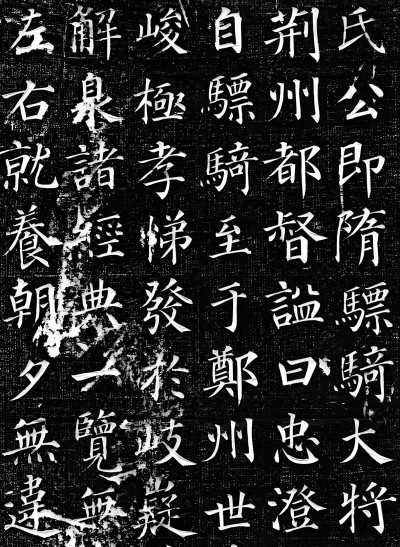 氏公即隋驃騎大將
荆州都督諡曰忠澄
自驃騎至于鄭州世
峻極孝悌發於岐嶷
解臮諸經典一覽無
左右就養朝夕無違